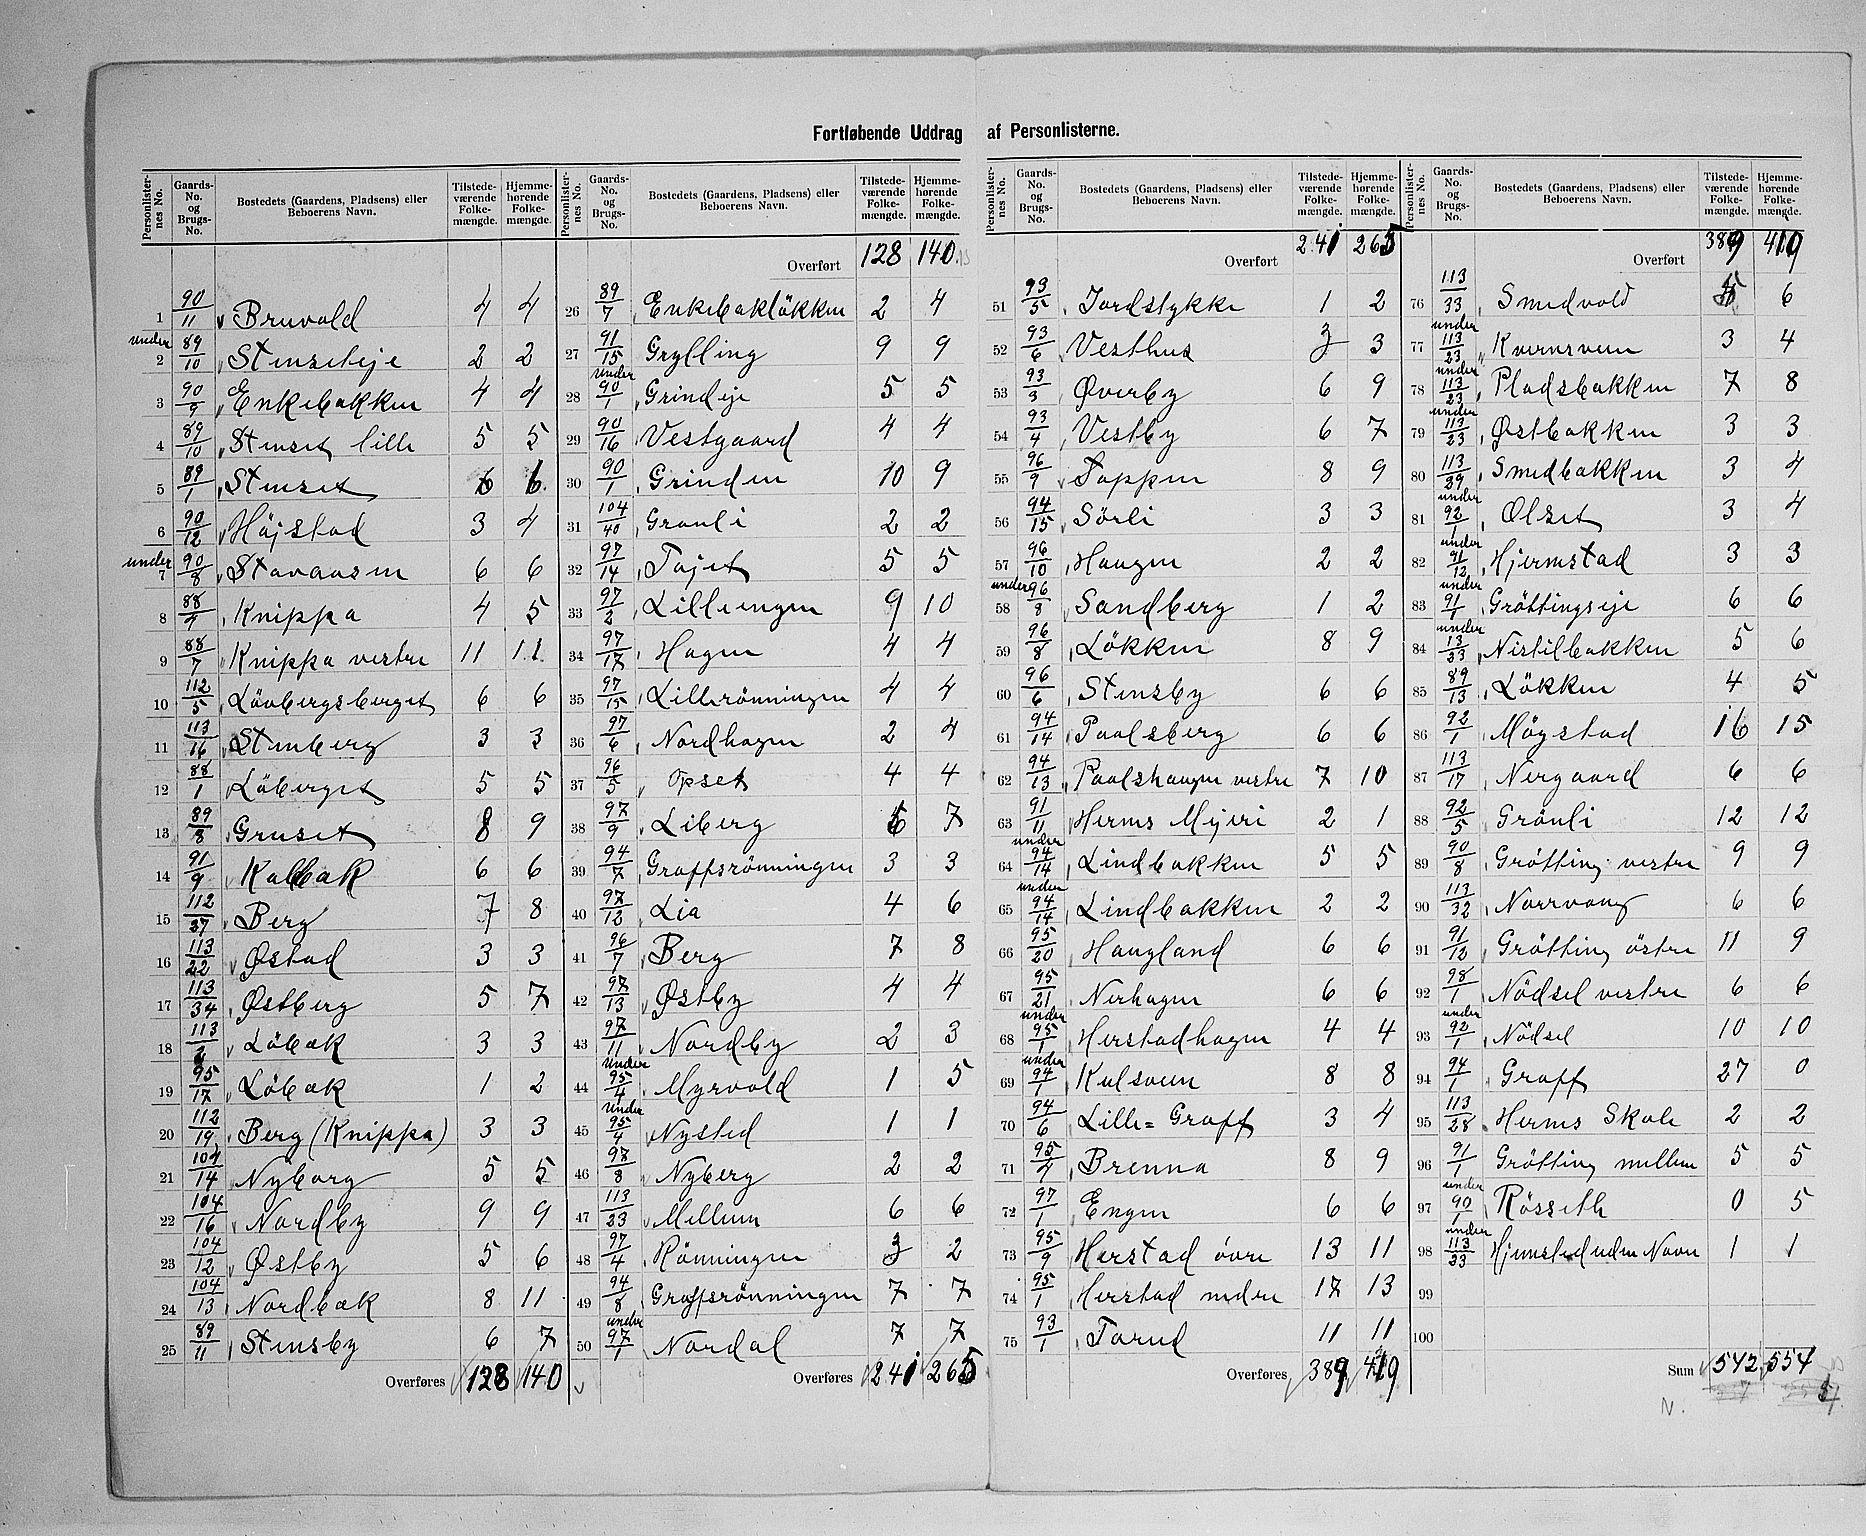 Fortløbende Uddrag af Personlisterne.
Personlister-nes No. | Gaards-No. og Brugs-No. | Bostedets (Gaardens, Pladsens) eller Beboerens Navn. | Tilstede-værende Folke-mængde. | Hjemme-hørende Folke-mængde.
1 90/11 Bruvold 4 4
2 under 89/10 Stenseteje 2 2
3 90/9 Enkebakken 4 4
4 89/10 Stenset lille 5 5
5 89/1 Stenset 6 6
6 90/12 Höjstad 3 4
7 under 90/8 Stavaasen 6 6
8 Knippa 4 5
9 88/7 Knippa vestre 11 11
10 112/5 Lövbergsberget 6 6
11 113/16 Stenberg 3 3
12 88/1 Löberget 5 5
13 89/8 Gruset 8 9
14 91/9 Kalbak 6 6
15 112/37 Berg 7 8
16 113/22 Østad 3 3
17 113/34 Østberg 5 7
18 113/2 Löbæk 3 3
19 95/17 Löbæk 1 2
20 112/19 Berg (Knippa) 3 3
21 104/14 Nyborg 5 5
22 104/16 Nordby 9 9
23 104/12 Østby 5 6
24 104/13 Nordbæk 8 11
25 89/11 Stensby 6 7
Overføres 128 140
Personlister-nes No. | Gaards-No. og Brugs-No. | Bostedets (Gaardens, Pladsens) eller Beboerens Navn. | Tilstede-værende Folke-mængde. | Hjemme-hørende Folke-mængde.
Overført 128 140
26 89/7 Enkebakløkken 2 4
27 91/15 Grylling 9 9
28 under 90/1 Grindeje 5 5
29 90/16 Vestgaard 4 4
30 90/1 Grinden 10 9
31 104/40 Granli 2 2
32 97/14 Tajet 5 5
33 97/2 Lilleengen 9 10
34 97/17 Hagen 4 4
35 97/15 Lillerönningen 4 4
36 97/6 Nordhagen 2 4
37 96/5 Opset 4 4
38 97/9 Liberg 6 7
39 94/7 Graffsrönningen 3 3
40 97/12 Lia 4 6
41 96/7 Berg 7 8
42 97/13 Østby 4 4
43 97/11 Nordby 2 3
44 under 95/4 Myrvold 1 5
45 under 95/4 Nysted 1 1
46 97/8 Nyberg 2 2
47 113/23 Mellem 6 6
48 97/4 Rönningen 3 2
49 94/8 Graffsrönningen 7 7
50 under 97/1 Nordal 7 7
Overføres 241 265
Personlister-nes No. | Gaards-No. og Brugs-No. | Bostedets (Gaardens, Pladsens) eller Beboerens Navn. | Tilstede-værende Folke-mængde. | Hjemme-hørende Folke-mængde.
Overført 241 265
51 93/5 Jordstykke 1 2
52 93/6 Vesthus 3 3
53 93/3 Øverby 6 9
54 93/4 Vestby 6 7
55 96/9 Tappen 8 9
56 94/15 Sörli 3 3
57 96/10 Haugen 2 2
58 under 96/8 Sandberg 1 2
59 96/8 Lökken 8 9
60 96/6 Stensby 6 6
61 94/14 Paalsberg 6 6
62 94/13 Paalshaugen vestre 7 10
63 91/11 Hernes Mejeri 2 1
64 under 94/14 Lindbakken 5 5
65 under 94/14 Lindbakken 2 2
66 95/20 Haugland 6 6
67 95/21 Nerhagen 6 6
68 under 95/1 Herstadhagen 4 4
69 under 94/1 Kulsveen 8 8
70 94/6 Lille=Graff 3 4
71 95/4 Brenna 8 9
72 97/1 Engen 6 6
73 95/9 Herstad övre 13 11
74 95/1 Herstad nedre 17 13
75 93/1 Tarud 11 11
Overføres 389 419
Personlister-nes No. | Gaards-No. og Brugs-No. | Bostedets (Gaardens, Pladsens) eller Beboerens Navn. | Tilstede-værende Folke-mængde. | Hjemme-hørende Folke-mængde.
Overført 389 419
76 113/33 Smedvold 5 6
77 under 113/23 Kvernveen 3 4
78 under 113/23 Pladsbakken 7 8
79 under 113/23 Østbakken 3 3
80 113/29 Smedbakken 3 4
81 under 92/1 Olset 3 4
82 under 91/12 Hjermstad 3 3
83 under 91/1 Gröttingseje 6 6
84 under 13/33 Nistilbakken 5 6
85 89/13 Lökken 4 5
86 92/1 Möystad 16 15
87 113/17 Nergaard 6 6
88 92/5 Grönli 12 12
89 90/8 Grötting vestre 9 9
90 113/32 Norrvang 6 6
91 91/12 Grötting östre 11 9
92 98/1 Nödsel vestre 6 6
93 under 92/1 Nödsel 10 10
94 94/1 Graff 27 0
95 113/28 Hernes Skole 2 2
96 91/1 Grötting mellem 5 5
97 under 90/1 Rösseth 0 5
98 under 113/23 Hjemsted uden Navn 1 1
99
100
Sum 542 554
N.